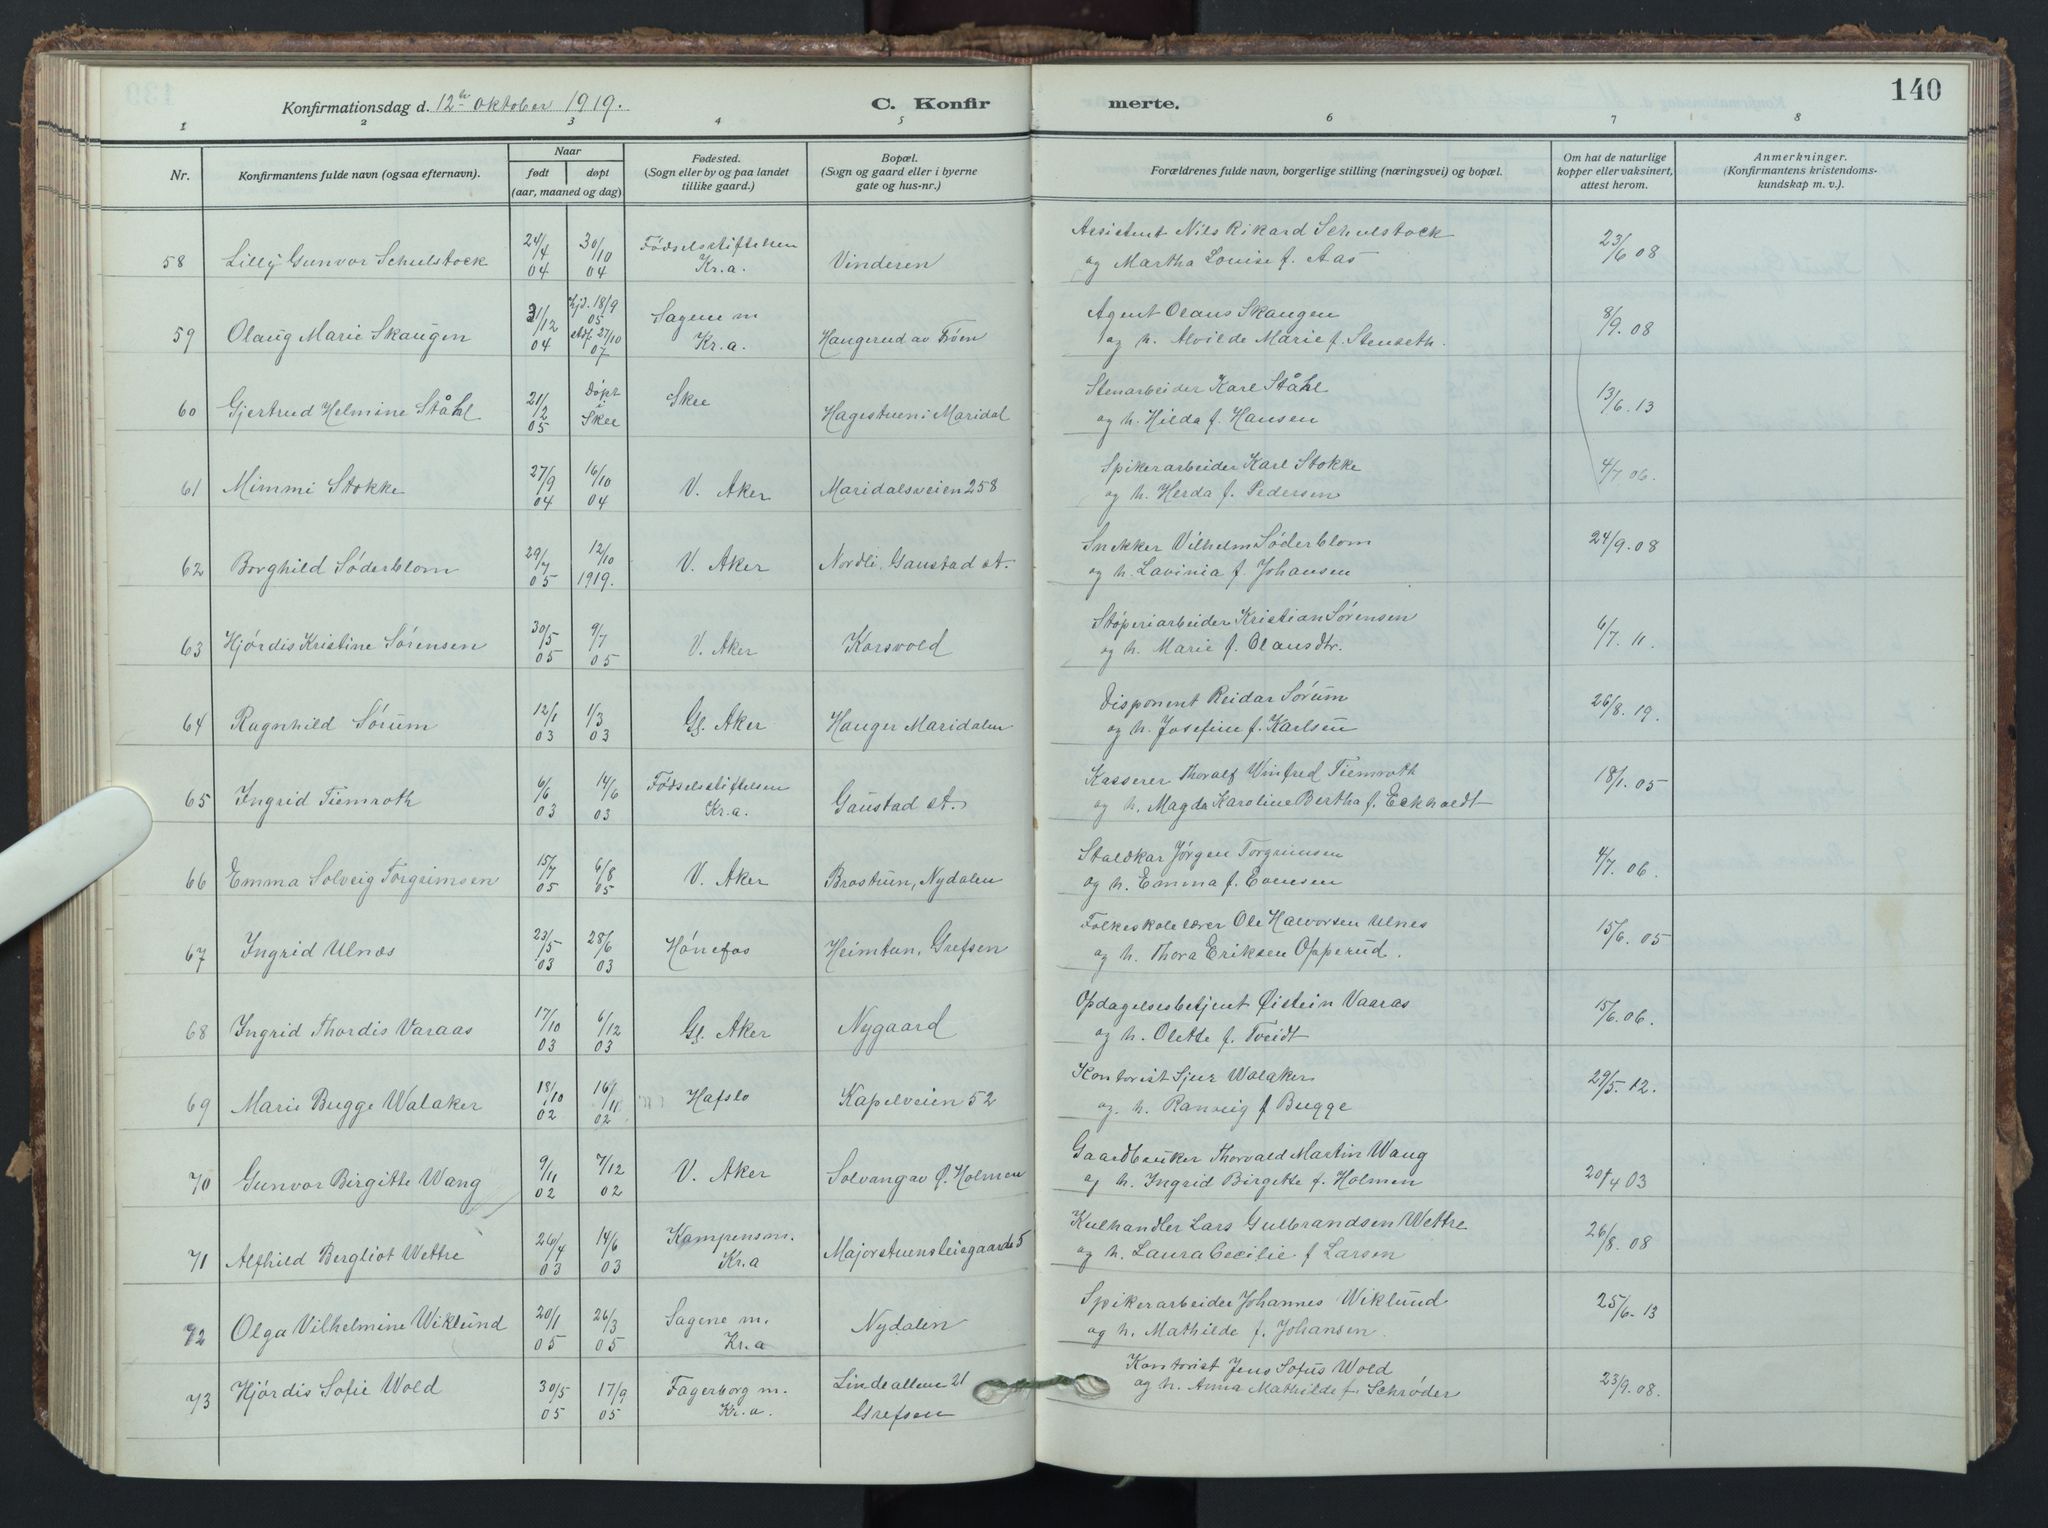 140
Konfirmationsdag d. 12te oktober 1919.
C. Konfirmerte.
1 2 3 4 5 6 7 8
Nr.
Konfirmantens fulde navn (ogsaa efternavn).
Naar
født
døpt
(aar, maaned og dag)
Fødested.
(Sogn eller by og paa landet
tillike gaard.)
Bopæl.
(Sogn og gaard eller i byerne
gate og hus-nr.)
Forældrenes fulde navn, borgerlige stilling (næringsvei) og bopæl.
Om hat de naturlige
kopper eller vaksinert,
attest herom.
Anmerkninger.
(Konfirmantens kristendoms-
kundskap m. v.).
58 Lilly Gunvor Schulstock 24/4 04 30/10 04 Fødselsstiftelsen Kr.a. Vinderen
Assistent Nils Rikard Schulstock
og Martha Louise f. Aas 23/6 08
59 Olaug Marie Skaugen 31/12 04 Hjd. 18/9 05 27/10 07 Sagene m Kr.a. Haugerud av Frøen
Agent Olaus Skaugen
og h. Alvilde Marie f. Stenseth. 8/9. 08
60 Gjertrud Helmine Ståhl 21/12 05 Døpt i Skee Skee Hagestuen i Maridal
Stenarbeider Karl Ståhl
og h. Hilda f. Hansen 13/6. 13
61 Mimmi Stokke 27/9 04 16/10 04 V. Aker Maridalsveien 258
Spikerarbeider Karl Stokke
og h. Herda f. Pedersen 4/7 06.
62 Borghild Søderblom 29/7 05 12/10 1919. V. Aker Nordli, Gaustad st.
Snekker Vilhelm Søderblom
og h. Lavinia f. Johansen 24/9. 08
63 Hjørdis Kristine Sørensen 30/5 05 9/7 05 V. Aker Korsvold
Støperiarbeider Kristian Sørensen
og h. Marie f. Olausdtr. 6/7. 11.
64 Ragnhild Sørum 12/1 03 1/3 03 Gl. Aker Hauger Maridalen
Disponent Reidar Sørum
og h. Josefine f. Karlsen 26/8. 19.
65 Ingrid Tiemroth 6/6 03 14/6 03 Fødselsstiftelsen Kr.a. Gaustad st.
Kasserer Thoralf Winfred Tiemroth
og h. Magda Karoline Bertha f. Eckholdt 18/1. 05
66 Emma Solveig Torgrimsen 15/7 05 6/8 05 V. Aker Brostuen, Nydalen
Staldkar Jørgen Torgrimsen
og h. Emma f. Evensen 4/7. 06.
67 Ingrid Ulnæs 23/5 03 28/6 03 Hønefos Heimtun, Grefsen
Folkeskolelærer Ole Halvorsen Ulnes
og h. Thora Eriksen Opperud. 15/6. 05
68 Ingrid Thordis Varaas 17/10 03 6/12 03 Gl. Aker Nygaard
Opdagelsesbetjent Øistein Vaaras
og h. Olette f. Tveidt 15/6. 06.
69 Marie Bugge Walaker 18/10 02 16/11 02 Hafslo Kapelveien 52
Kontorist Sjur Walaker
og. h. Ranveig f Bugge 29/5. 12.
70 Gunvor Birgitte Wang 9/11 02 7/12 02 V. Aker Solvang av Ø. Holmen
Gaardbruker Thorvald Martin Wang
og h. Ingrid Birgitte f. Holmen 20/4 03
71 Alfhild Bergliot Wettre 26/4 03 14/6 03 Kampens m. Kr.a Majorstuensleiegaarde 5
Kulhandler Lars Gulbrandsen Wettre
og h. Laura Cecilie f Larsen 26/8. 08
72 Olga Vilhelmine Wiklund 20/1 05 26/3 05 Sagene m. Kr.a Nydalen
Spikerarbeider Johannes Wiklund
og h. Mathilde f. Johansen. 25/6. 13
73 Hjørdis Sofie Wold 30/5 05 17/9 05 Fagerborg m. Kr.a. Lindealleen 21 Grefsen
Kontorist Jens Sofus Wold
og h. Anna Mathilde f. Schrøder 23/9. 08.